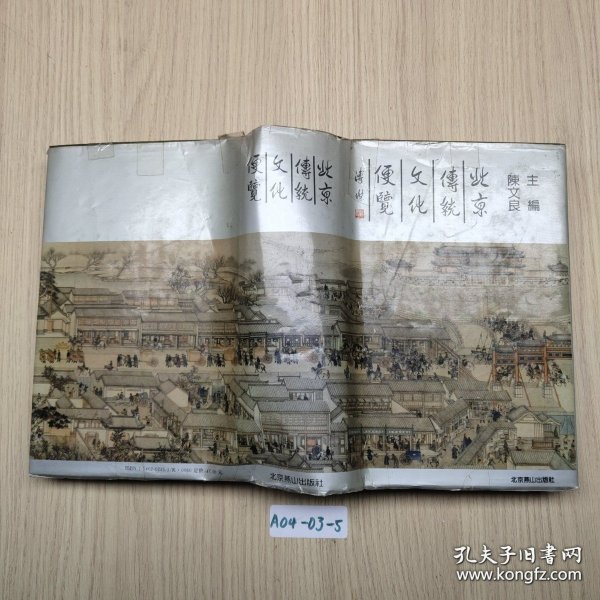 北京
傳統
文化
便覽
北京
傳統
文化
便覽
主編
陳文良
北京燕山出版社
北京燕山出版社
A04-03-5
孔夫子旧书网
www.kongfz.com